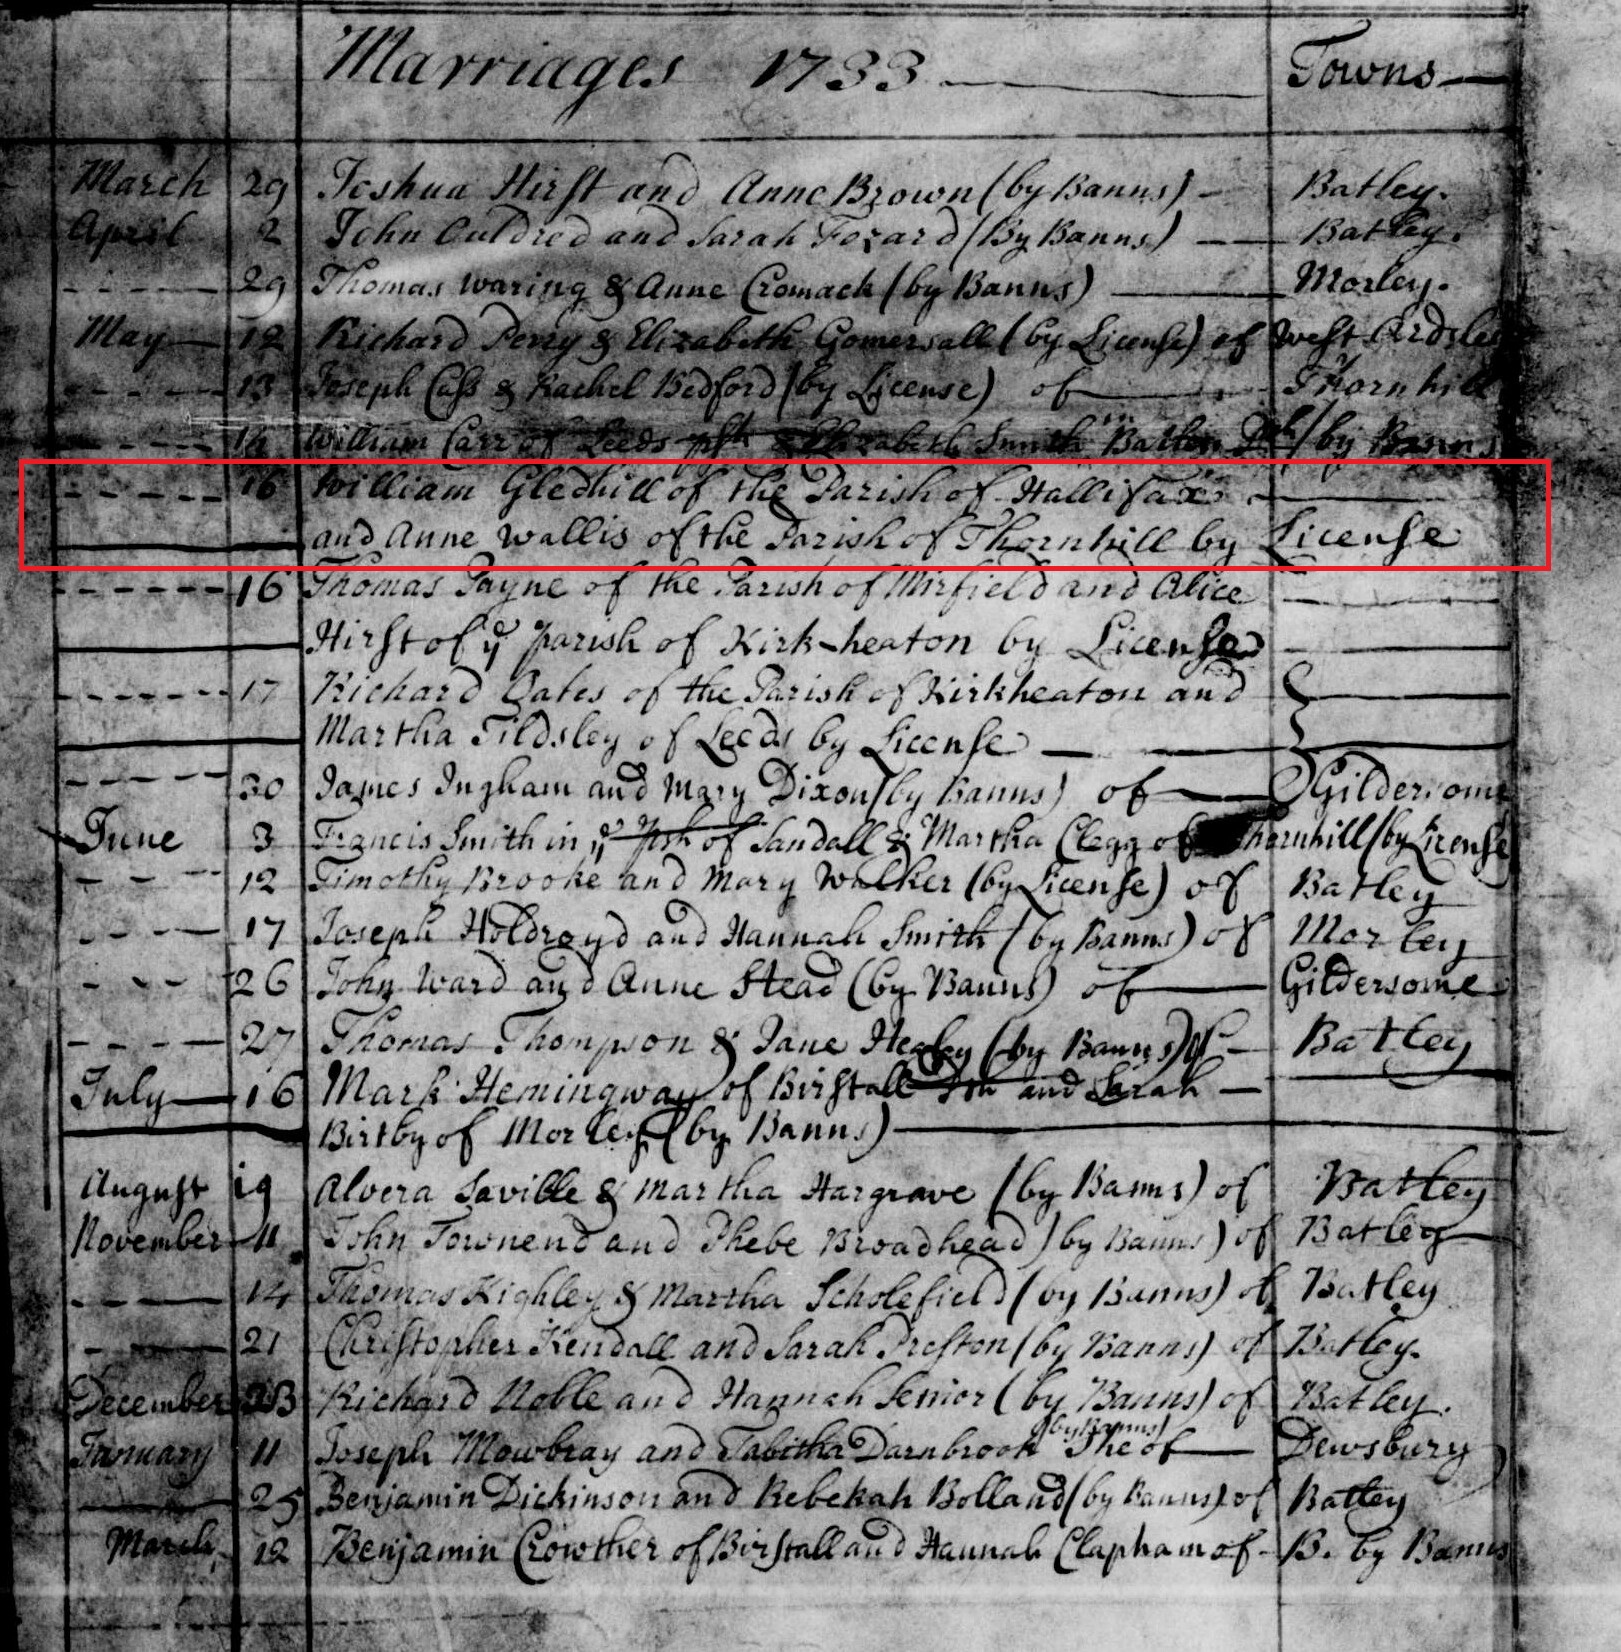 Marriages 1733 Towns
March 29 Joshua Hirst and Anne Brown (by Banns) Batley.
April 2 John Culdred and Sarah Fozard (By Banns) Batley.
29 Thomas Waring & Anne Cromack (by Banns) Morley.
May 12 Richard Perry & Elizabeth Gomersall (by License) of West Ardsley
13 Joseph Cass & Rachel Bedford (by License) of Thornhill
14 William Carr of Leeds psh & Elizabeth Smith in Batley Psh (by Banns
16 William Gledhill of the Parish of Hallifax
and Anne Wallis of the Parish of Thornhill by License
16 Thomas Payne of the Parish of Mirfield and Alice
Hirst of ye parish of Kirk-heaton by License
17 Richard Oates of the Parish of Kirkheaton and
Martha Tildsley of Leeds by License
30 James Ingham and Mary Dixon (by Banns) of Gildersome
June 3 Francis Smith in ye Psh of Sandall & Martha Clegg of Thornhill (by License
12 Timothy Brooke and Mary Walker (by License) of Batley
17 Joseph Holdroyd and Hannah Smith (by Banns) of Morley
26 John Ward and Anne Stead (by Banns) of Gildersome
27 Thomas Thompson & Jane Healey (by Banns) of Batley
July 16 Mark Hemingway of Birstall Psh and Sarah
Birtby of Morley (by Banns)
August 19 Alvera Saville & Martha Hargrave (by Banns) of Batley
November 11 John Townend and Phebe Broadhead) by Banns) of Batley
14 Thomas Kighley & Martha Scholefield (by Banns) of Batley
21 Christopher Kendall and Sarah Preston (by Banns) of Batley.
December Richard Noble and Hannah Senior (by Banns) of Batley.
January 11 Joseph Mowbray and Tabitha Darnbrook (by Banns) She of Dewsbury
25 Benjamin Dickinson and Rebekah Bolland (by Banns) of Batley
March 12 Benjamin Crowther of Birstall and Hannah Clapham of B. by Banns